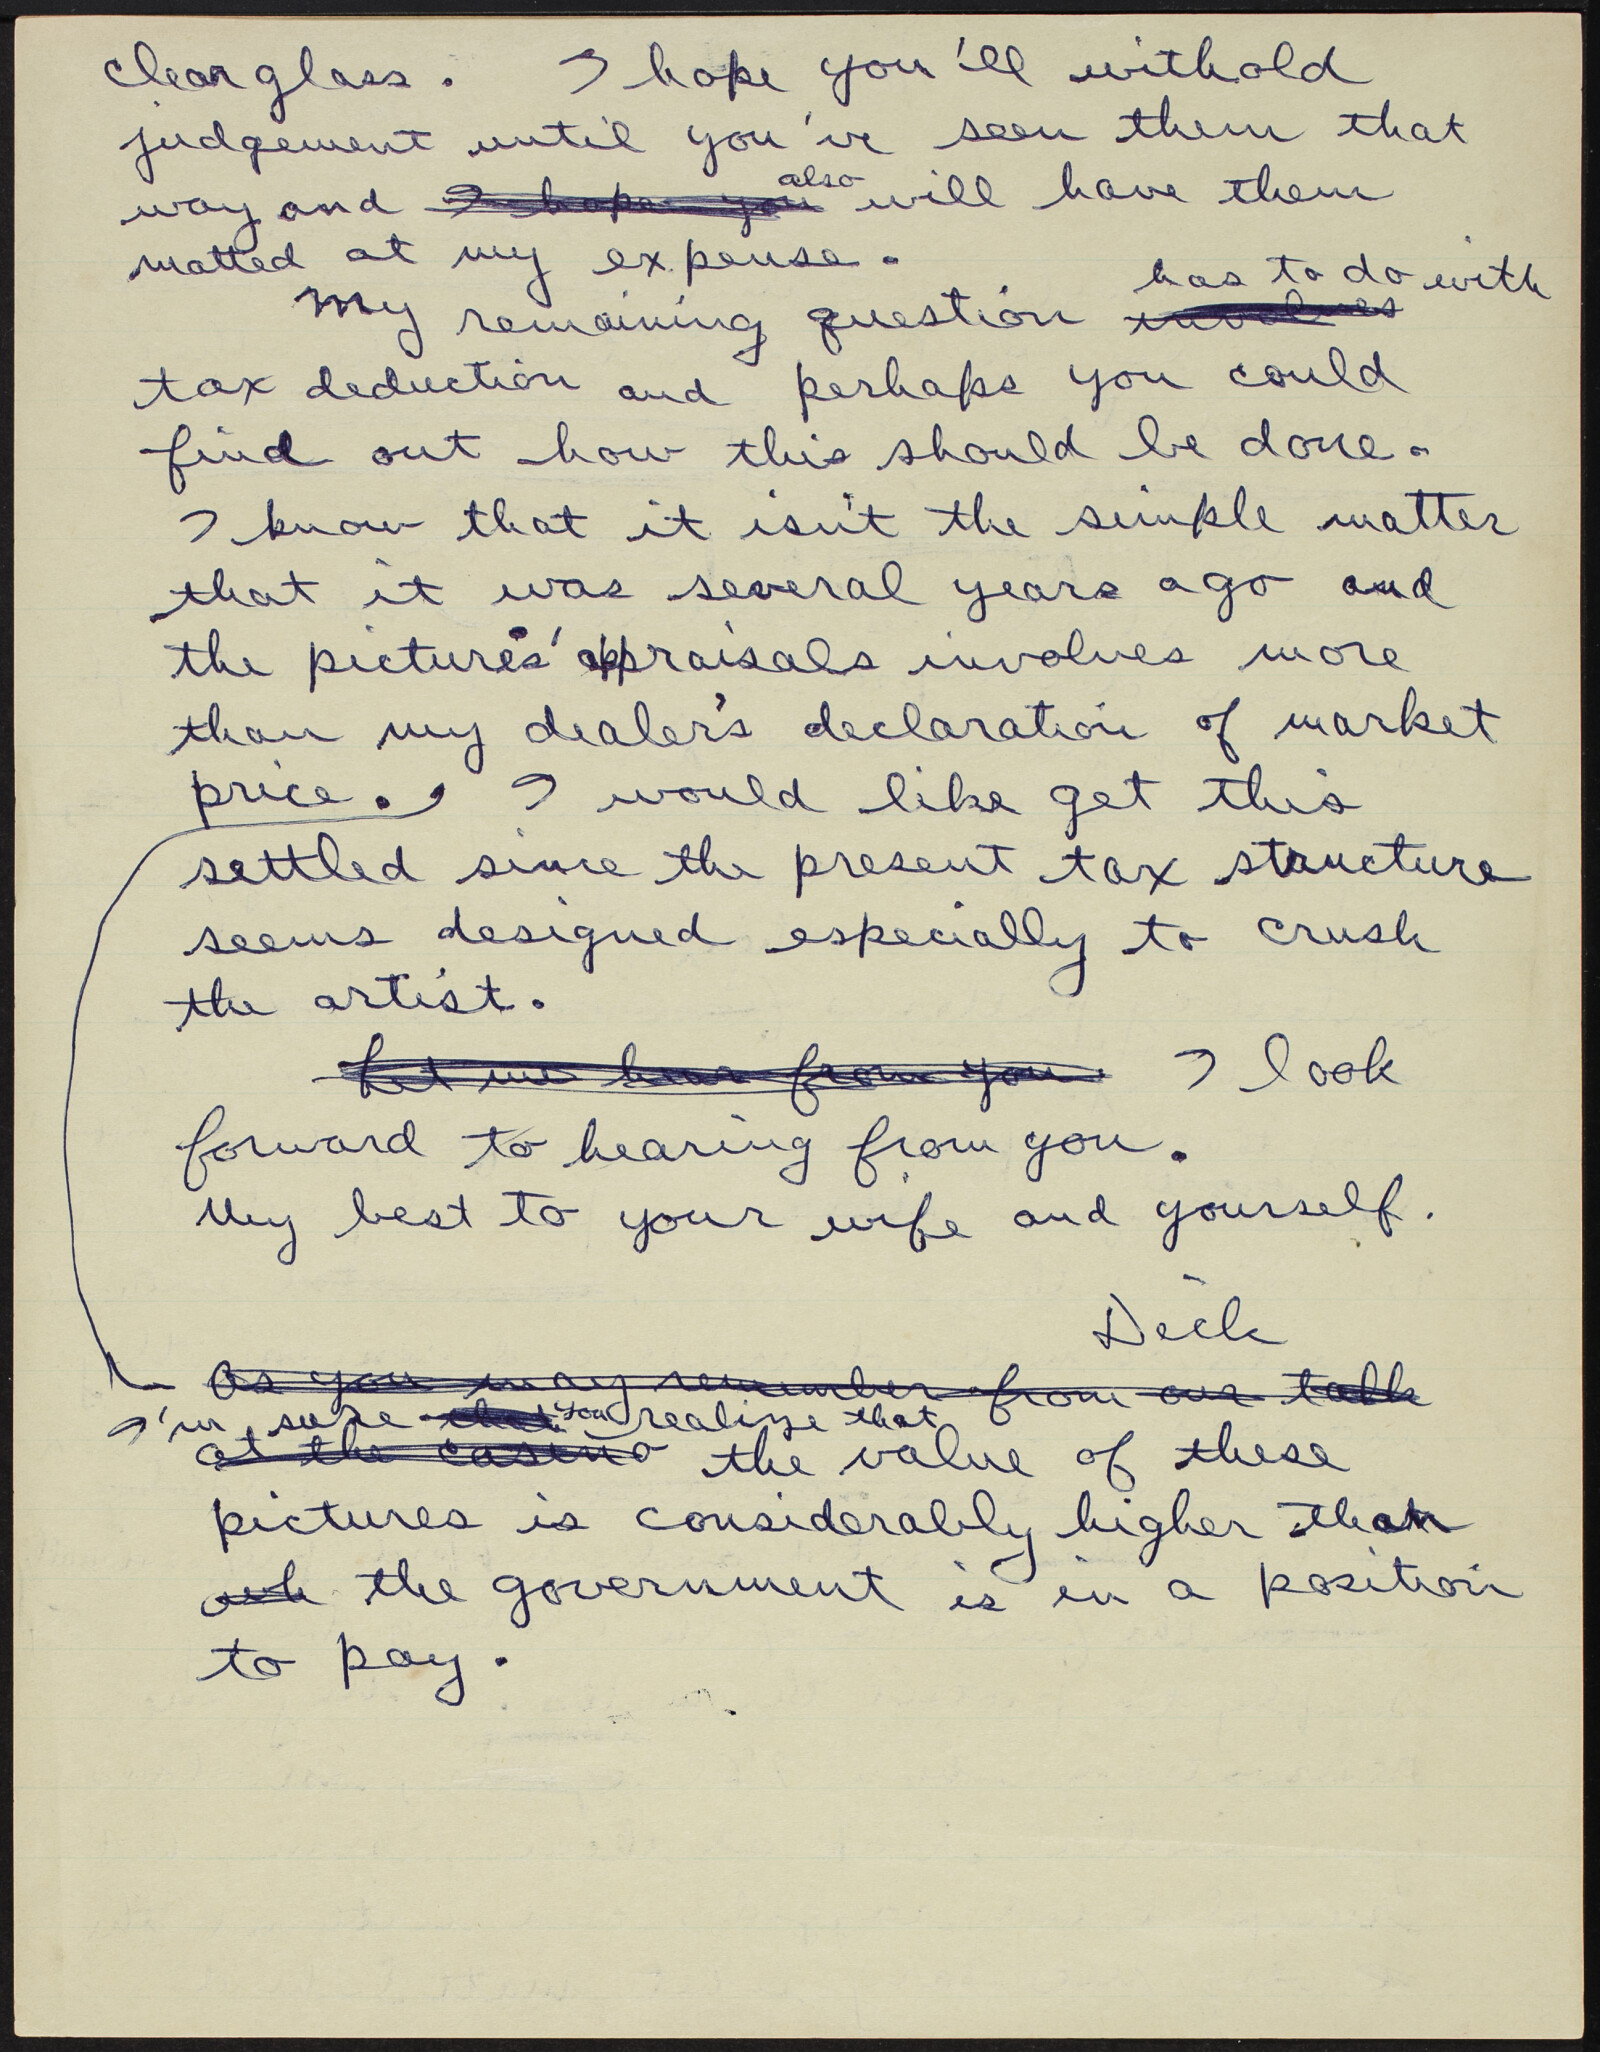 clear glass. I hope you'll withold
judgement until you've seen them that
also
way and I hope you will have them
matted at my expense.
has to do with
My remaining question involves
tax deduction and perhaps you could
find out how this should be done.
I know that it isn't the simple matter
that it was several years ago and
the pictures' appraisals involves more
than my dealer's declaration of market
price. I would like get this
settled since the present tax structure
seems designed especially to crush
the artist.
Let me hear from you. I look
forward to hearing from you.
My best to your wife and yourself.
Dick
As you may remember from our talk
I'm sure that you realize that
at the casino the value of these
pictures is considerably higher than
the government is in a position
to pay.